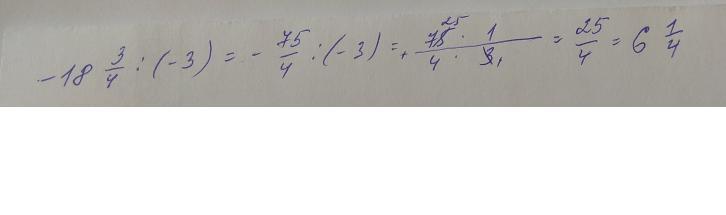 -18 3/4 : (-3) = - 75/4 : (-3) = + 75 25 · 1 / 4 · 3 1 = 25/4 = 6 1/4